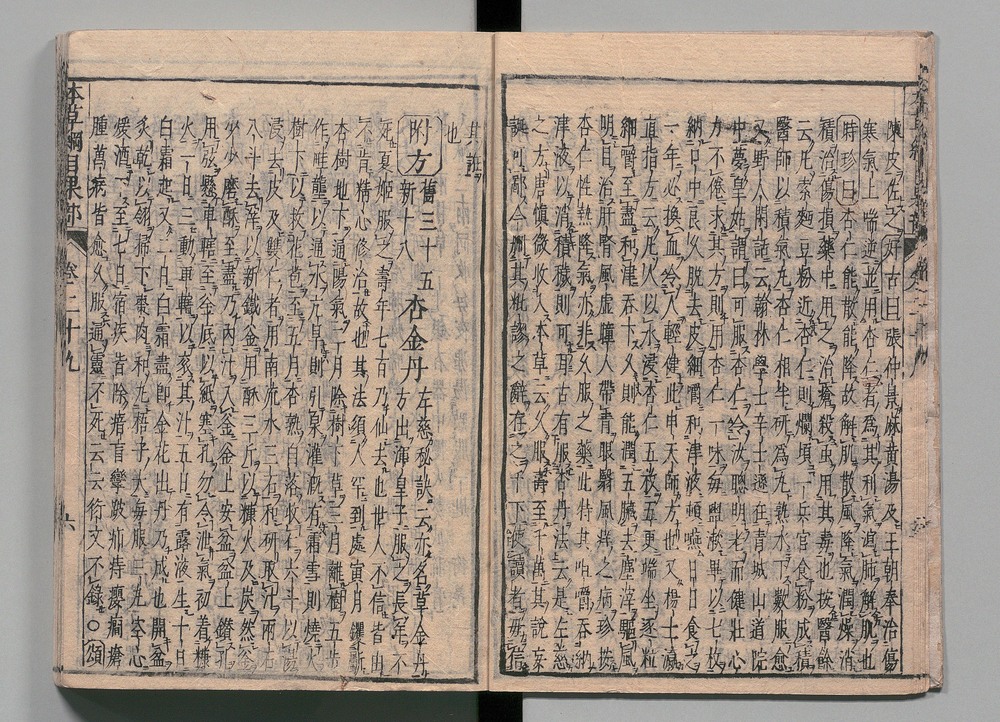 陳皮佐之○好古曰張仲景麻黃湯及王朝奉治傷
寒氣上喘逆並用杏仁者為其利氣瀉肺解肌也
時珍曰杏仁能散能降故解肌散風降氣潤燥消
積治傷損藥中用之治瘡殺虫用其毒也按醫餘
云凡索麪豆粉近杏仁則爛頃一兵官食粉成積
醫師以積氣丸杏仁相半研為丸熟水下數服愈
又野人閑話云翰林學士辛士遜在青城山道院
中夢皇姑謂曰可服杏仁令汝聰明老而健壯心
力不倦求其方則用杏仁一味每盥漱畢以七枚
納口中良久脫去皮細嚼和津液頓嚥日日食之
一年必換血令人輕健此申天師方也又楊士瀛
直指方云凡人以水浸杏仁五枚五更端坐逐粒
細嚼至盡和津吞下久則能潤五臟去塵滓驅風
明目治肝腎風虛瞳人帶青眼翳風痒之病珍按
杏仁性熱降氣亦非久服之藥此特其咀嚼吞納
津液以消積穢則可耳古有服杏丹法云是左慈
之方唐慎微收入本草云久服壽至千萬其說妄
誕可鄙今刪其紕謬之辭存之于下使讀者毋信
其誑
也
附方舊三十五新十八杏金丹左慈秘訣云亦名草金丹
方出渾皇子服之長年不
死夏姬服之壽年七百乃仙去也世人不信皆由
不肯精心修治故也其法須人罕到處寅月钁斸
杏樹地下通陽氣二月除樹下草三月離樹五步
作畦壟以通水亢旱則引泉灌溉有霜雪則燒火
樹下以救花苞至五月杏熟自落收仁六斗以湯
浸去皮及雙仁者用南流水三石和研取汁兩石
八斗去滓以新鐵釜用酥三斤以糠火及炭然釜
少少磨酥至盡乃內汁入釜釜上安盆盆上鑽孔
用弦懸車轄至釜底以紙塞孔勿令泄氣初着糠
火一日三動車轄以衮其汁五日有露液生十日
白霜起又二日白霜盡即金花出丹乃成也開盆
炙乾以翎掃下棗肉和丸梧子大每服三丸空心
煖酒下至七日宿疾皆除瘖盲攣跛疝痔癭癎瘡
腫萬病皆愈久服通靈不死云云衍文不錄○頌
本草綱目果部 卷二十九 六